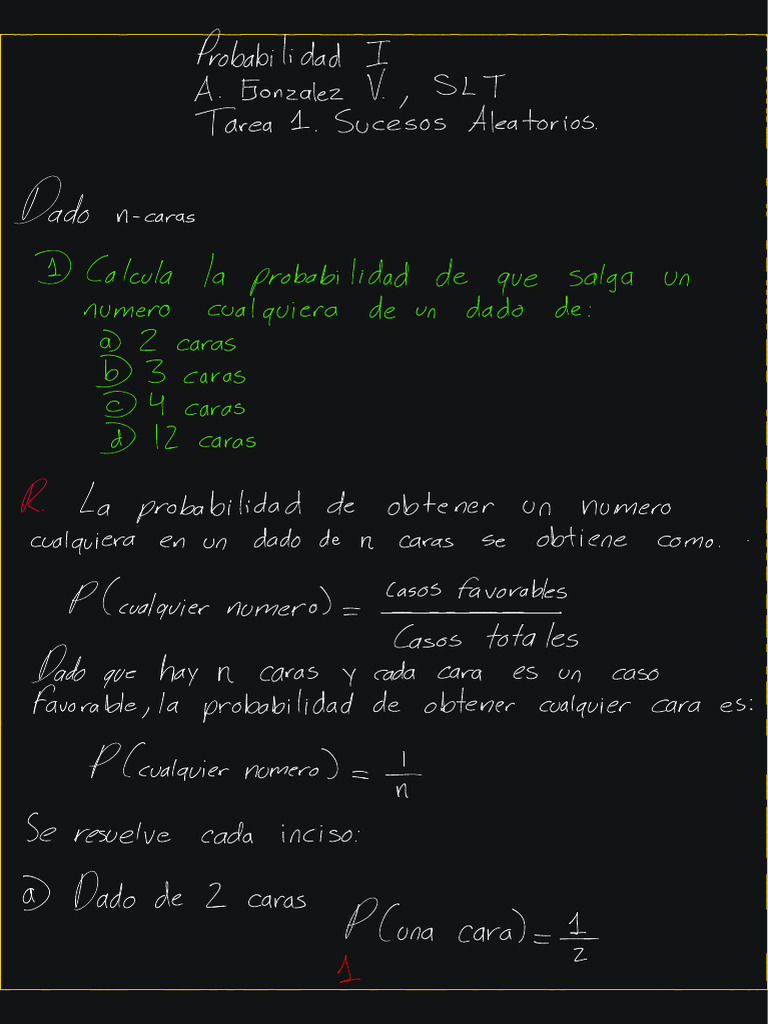 Probabilidad I
A. Gonzalez V., SLT
Tarea 1. Sucesos Aleatorios.
Dado n-caras
1) Calcula la probabilidad de que salga un
numero cualquiera de un dado de:
a) 2 caras
b) 3 caras
c) 4 caras
d) 12 caras
R. La probabilidad de obtener un numero
cualquiera en un dado de n caras se obtiene como.
P(cualquier numero) = casos favorables / Casos totales
Dado que hay n caras y cada cara es un caso
favorable, la probabilidad de obtener cualquier cara es:
P(cualquier numero) = 1/n
Se resuelve cada inciso:
a) Dado de 2 caras
P(una cara) = 1/2
1